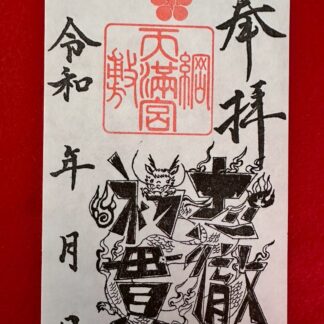 奉拝
綱敷天満宮
忠徹
初貫
令和 年 月 日